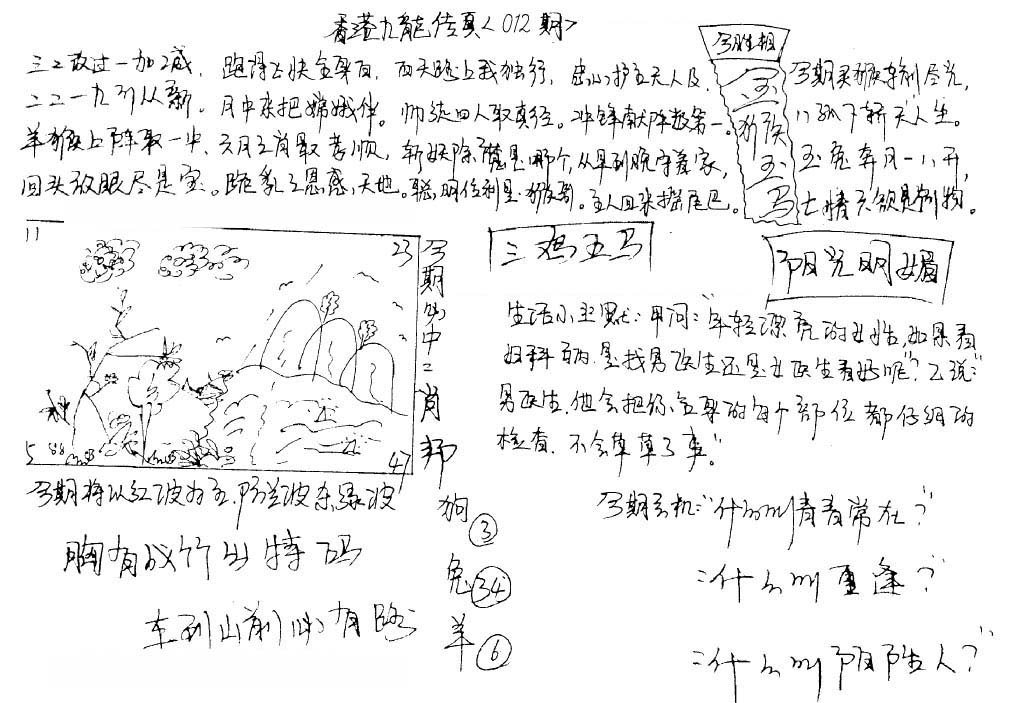 香港九龍传真<012期>
三二放过一加二减，跑得士快全身白，西天路上我独行，忠心护主无人及，
二二一九引从新。月中来把嫦娥伴。师徒四人取真经。冲锋献阵数第一。
羊猴上阵取一中，六月生肖最孝顺，斩妖除魔是哪个，从早到晚守着家，
回头放眼尽是宝。跪乳之恩感天地。聪明伶利是猴哥。主人回来摇尾巴。
今期生相
玉
猴
玉
马
今期灵猴
八
玉兔奔月一八开，
七情六欲是
11
23
5
47
今期必中二肖
三鸡五马
阳光明媚
生活小幽默：甲问："年轻漂亮的女性，如果看
妇科病，是找男医生还是女医生看好呢"？乙说："
男医生，他会把你全身的每个部位都仔细的
检查，不会草草了事。"
今期将以红波为主，防兰波杀绿波
胸有成竹出特码
车到山前必有路
狗③
兔㉞
羊⑥
今期玄机："什么叫青春常在？"
："什么叫重逢？"
："什么叫阴阳人？"